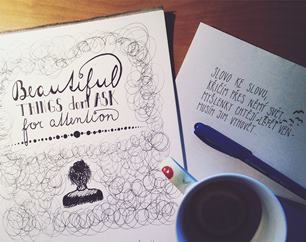 Beautiful
THINGS don't ASK
for attention
SLOVO KE SLOVU,
KŘIČÍM PŘES NĚMÝ SVĚT.
MYŠLENKY CHTĚJÍ LETĚT VEN,
MUSÍM JIM VYHOVĚT.